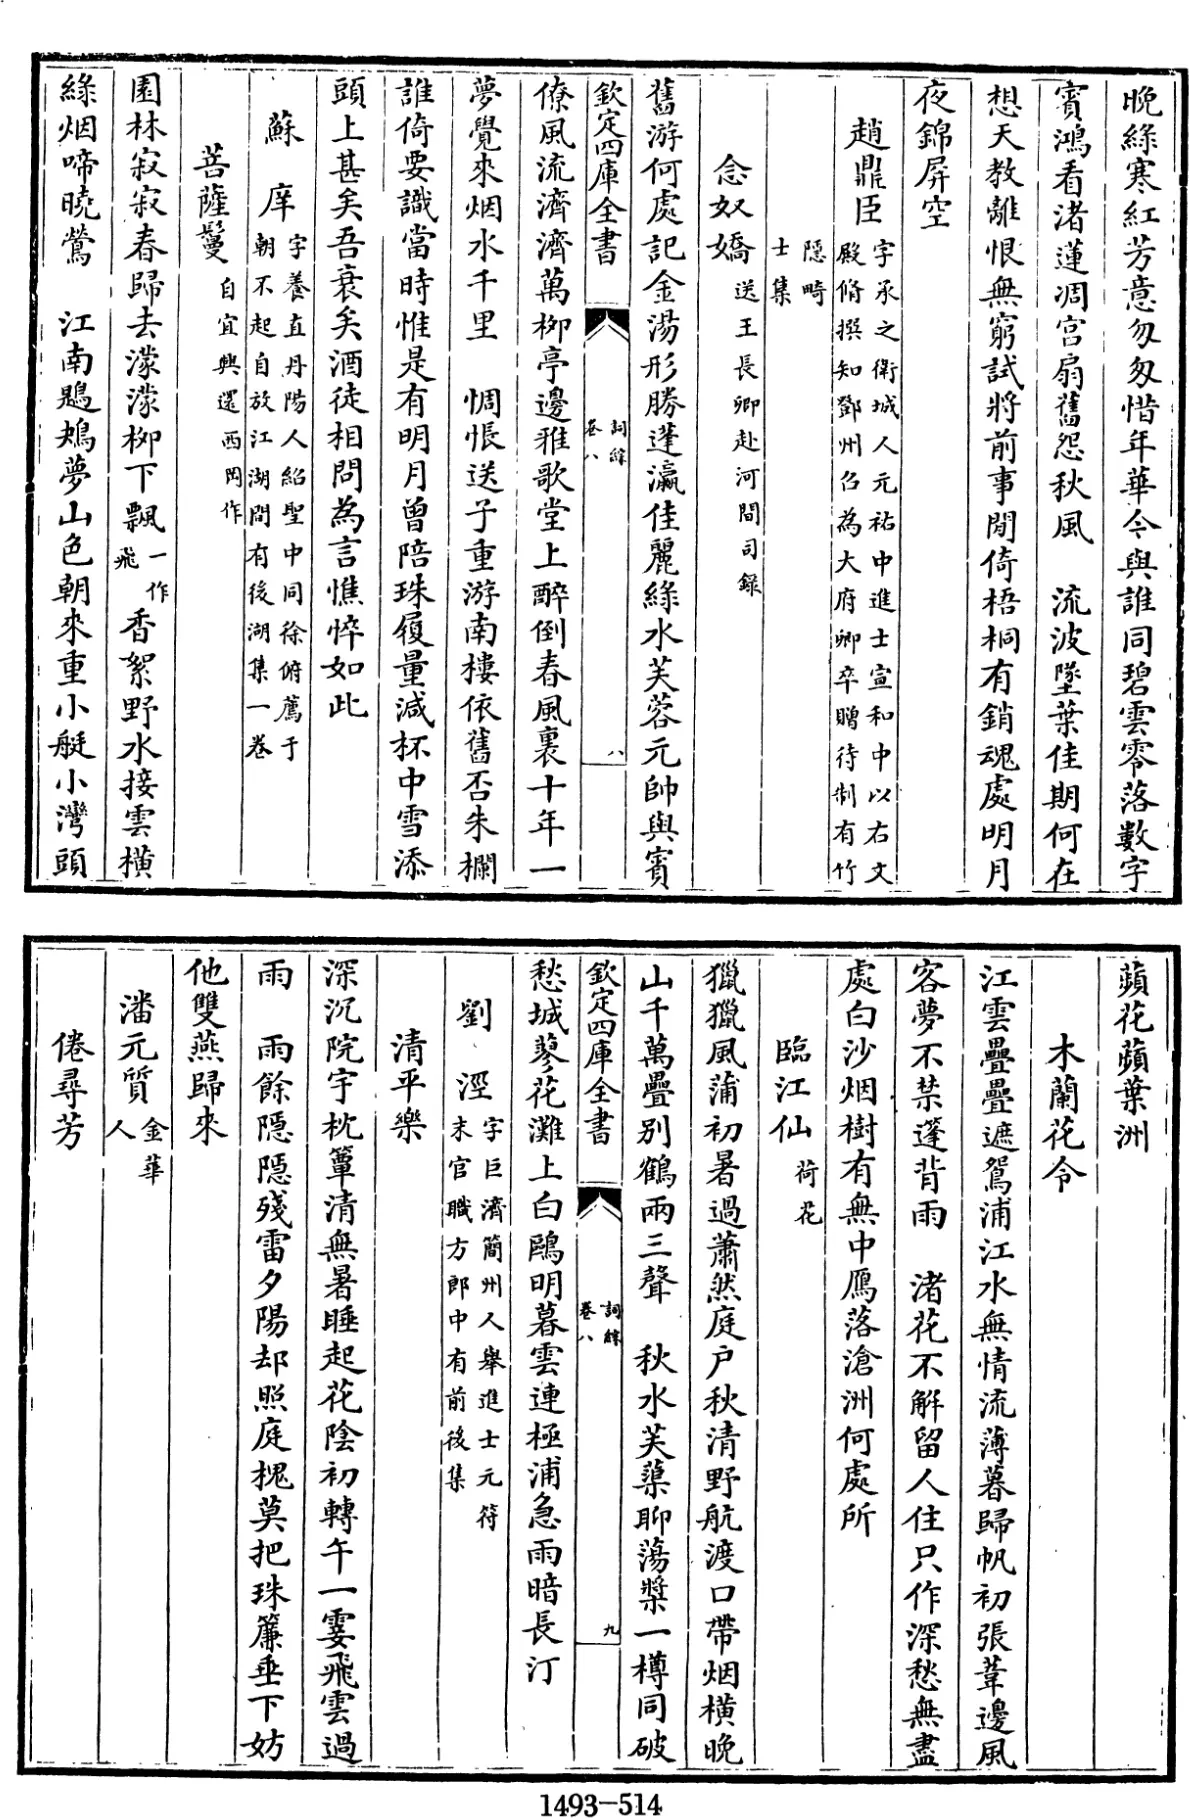 晚綠寒紅芳意匆匆惜年華今與誰同碧雲零落數字
賓鴻看渚蓮凋宮扇舊怨秋風　流波墜葉佳期何在
想天教離恨無窮試將前事閒倚梧桐有銷魂處明月
夜錦屏空
趙鼎臣字承之衛城人元祐中進士宣和中以右文
殿脩撰知鄧州召為大府卿卒贈待制有竹
隠畸
士集
念奴嬌送王長卿赴河間司錄
舊游何處記金湯形勝蓬瀛佳麗綠水芙蓉元帥與賓
欽定四庫全書　詞綜
卷八　八
僚風流濟濟萬栁亭邊雅歌堂上醉倒春風裏十年一
夢覺來烟水千里　惆悵送子重游南樓依舊否朱欄
誰倚要識當時惟是有明月曾陪珠履量減杯中雪添
頭上甚矣吾衰矣酒徒相問為言憔悴如此
蘇庠字養直丹陽人紹聖中同徐俯薦于
朝不起自放江湖間有後湖集一巻
菩薩鬘自宜興還西岡作
園林寂寂春歸去濛濛栁下飄一作
飛香絮野水接雲橫
綠烟啼曉鶯　江南鶗鴂夢山色朝來重小艇小灣頭
蘋花蘋葉洲
木蘭花令
江雲疊疊遮鴛浦江水無情流薄暮歸帆初張葦邊風
客夢不禁蓬背雨　渚花不解留人住只作深愁無盡
處白沙烟樹有無中鴈落滄洲何處所
臨江仙荷花
獵獵風蒲初暑過蕭然庭户秋清野航渡口帶烟橫晚
山千萬疊别鶴兩三聲　秋水芙蕖聊蕩槳一樽同破
欽定四庫全書　詞綜
卷八　九
愁城蓼花灘上白鷗明暮雲連極浦急雨暗長汀
劉涇字巨濟簡州人舉進士元符
末官職方郎中有前後集
清平樂
深沉院宇枕簟清無暑睡起花陰初轉午一霎飛雲過
雨　雨餘隠隠殘雷夕陽却照庭槐莫把珠簾垂下妨
他雙燕歸來
潘元質金華
人
倦尋芳
1493-514